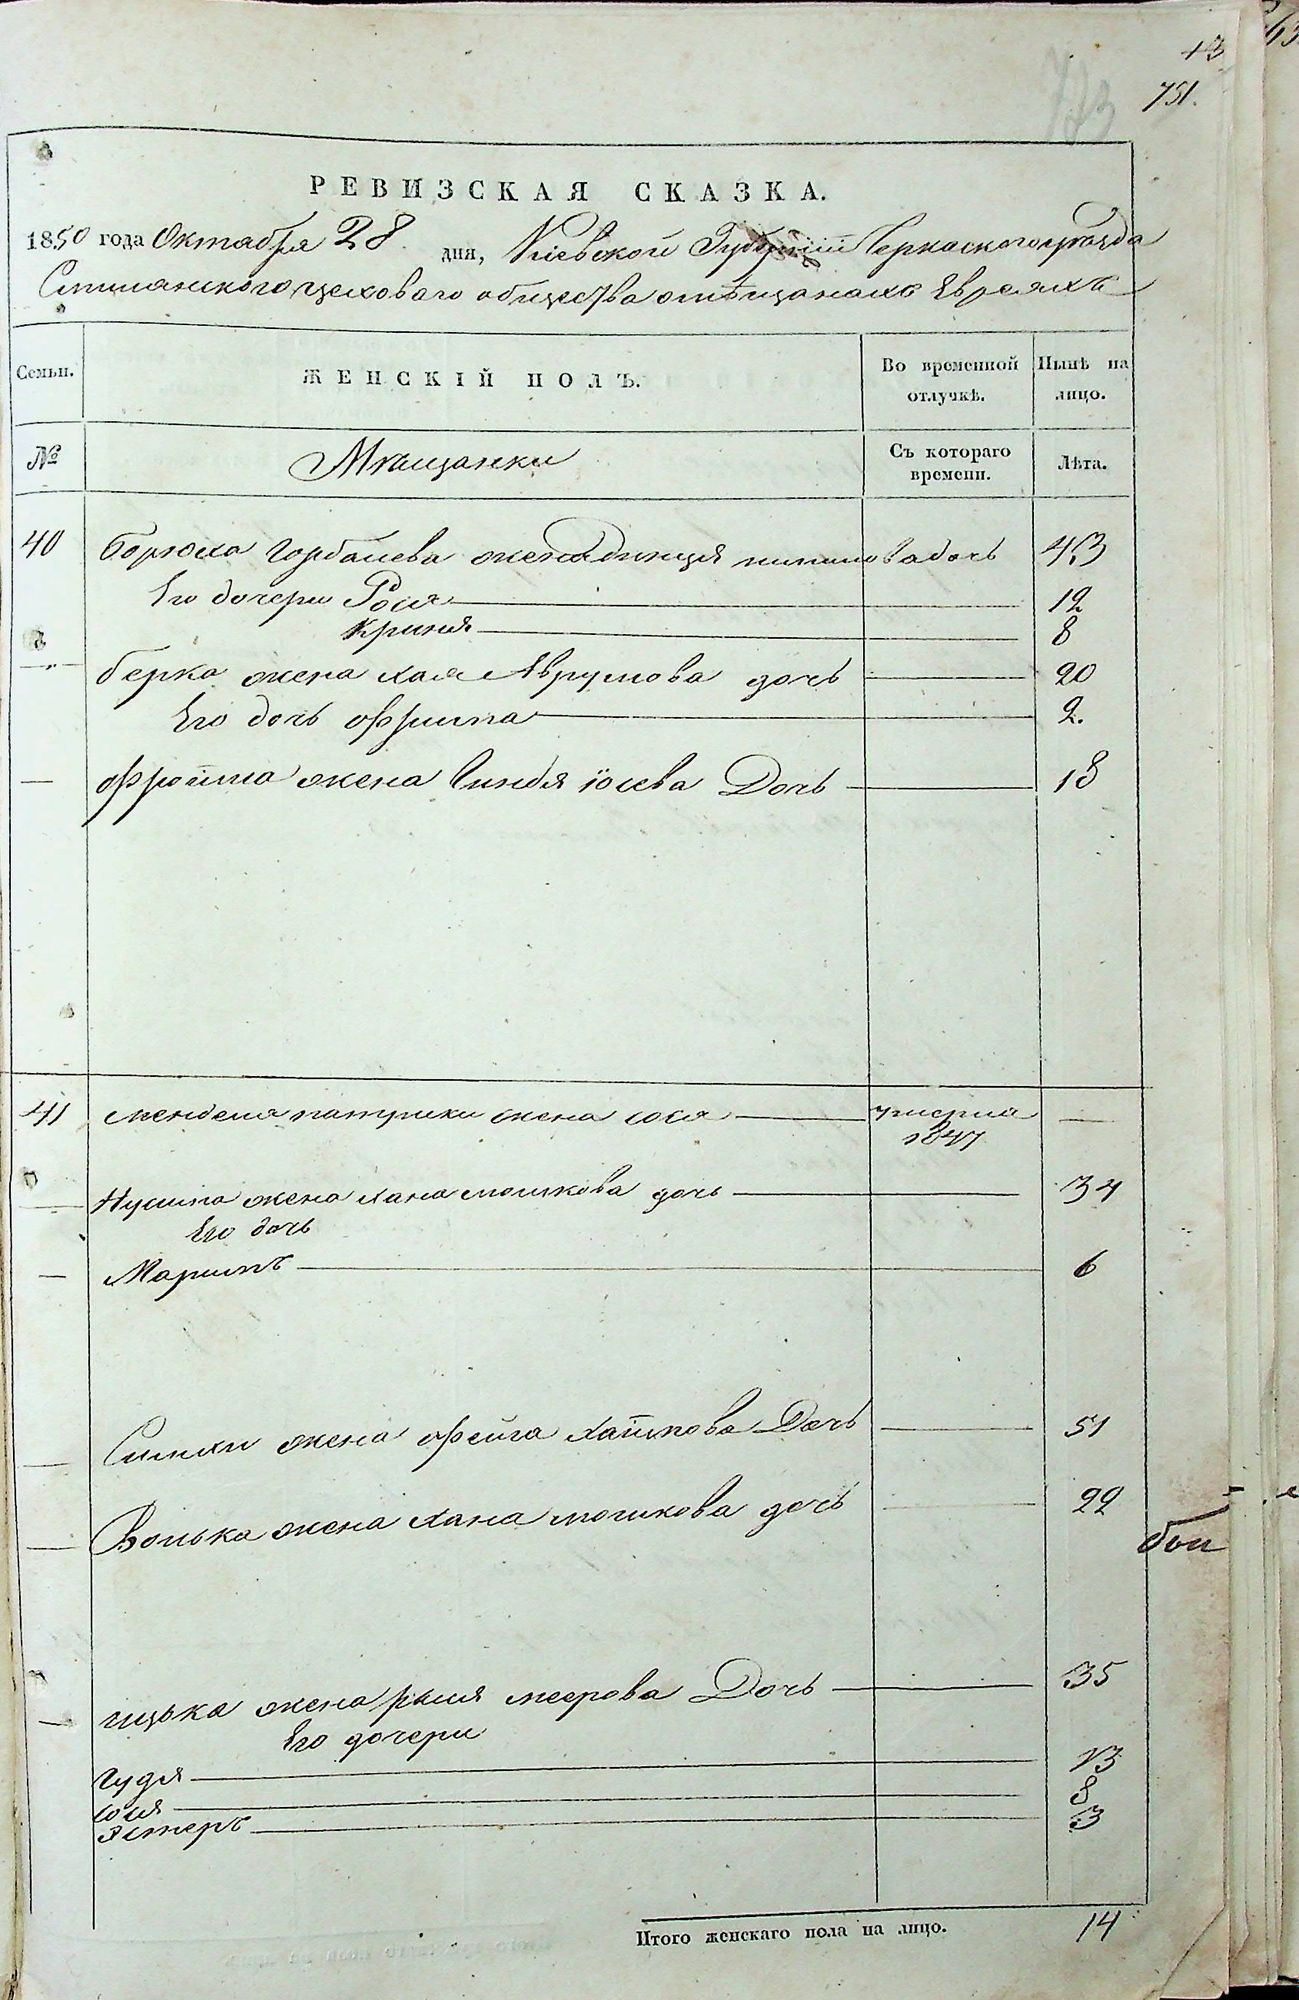 43
751.
РЕВИЗСКАЯ СКАЗКА.
1850 года Октября 28 дня, Кіевской Губерніи Черкаскаго уѣзда
Смилянскаго цеховаго общества о мѣщанахъ Евреяхъ
Семьи. ЖЕНСКІЙ ПОЛЪ. Во временной отлучкѣ. Нынѣ на лицо.
№ Мѣщанки Съ котораго времени. Лѣта.
40 Борюха Горбачева жена Динця дочь 43
Его дочери Рося 12
Криня 8
— берка жена хая Аврумова дочь 20
Его дочь Фрима 2.
— Фройма жена Гиндя Іосева Дочь 18
41 Менделя жена сося умерла 1847 —
— Нухима жена хана мошкова дочь 34
Его дочь
— Маримъ 6
— Симхи жена Фейга Хаимова Дочь 51
— Волька жена хана мошкова дочь 22
бои
— ицька жена рыся меерова Дочь 35
Его дочери
Гудя 13
сося 8
Эстеръ 3
Итого женскаго пола на лицо. 14